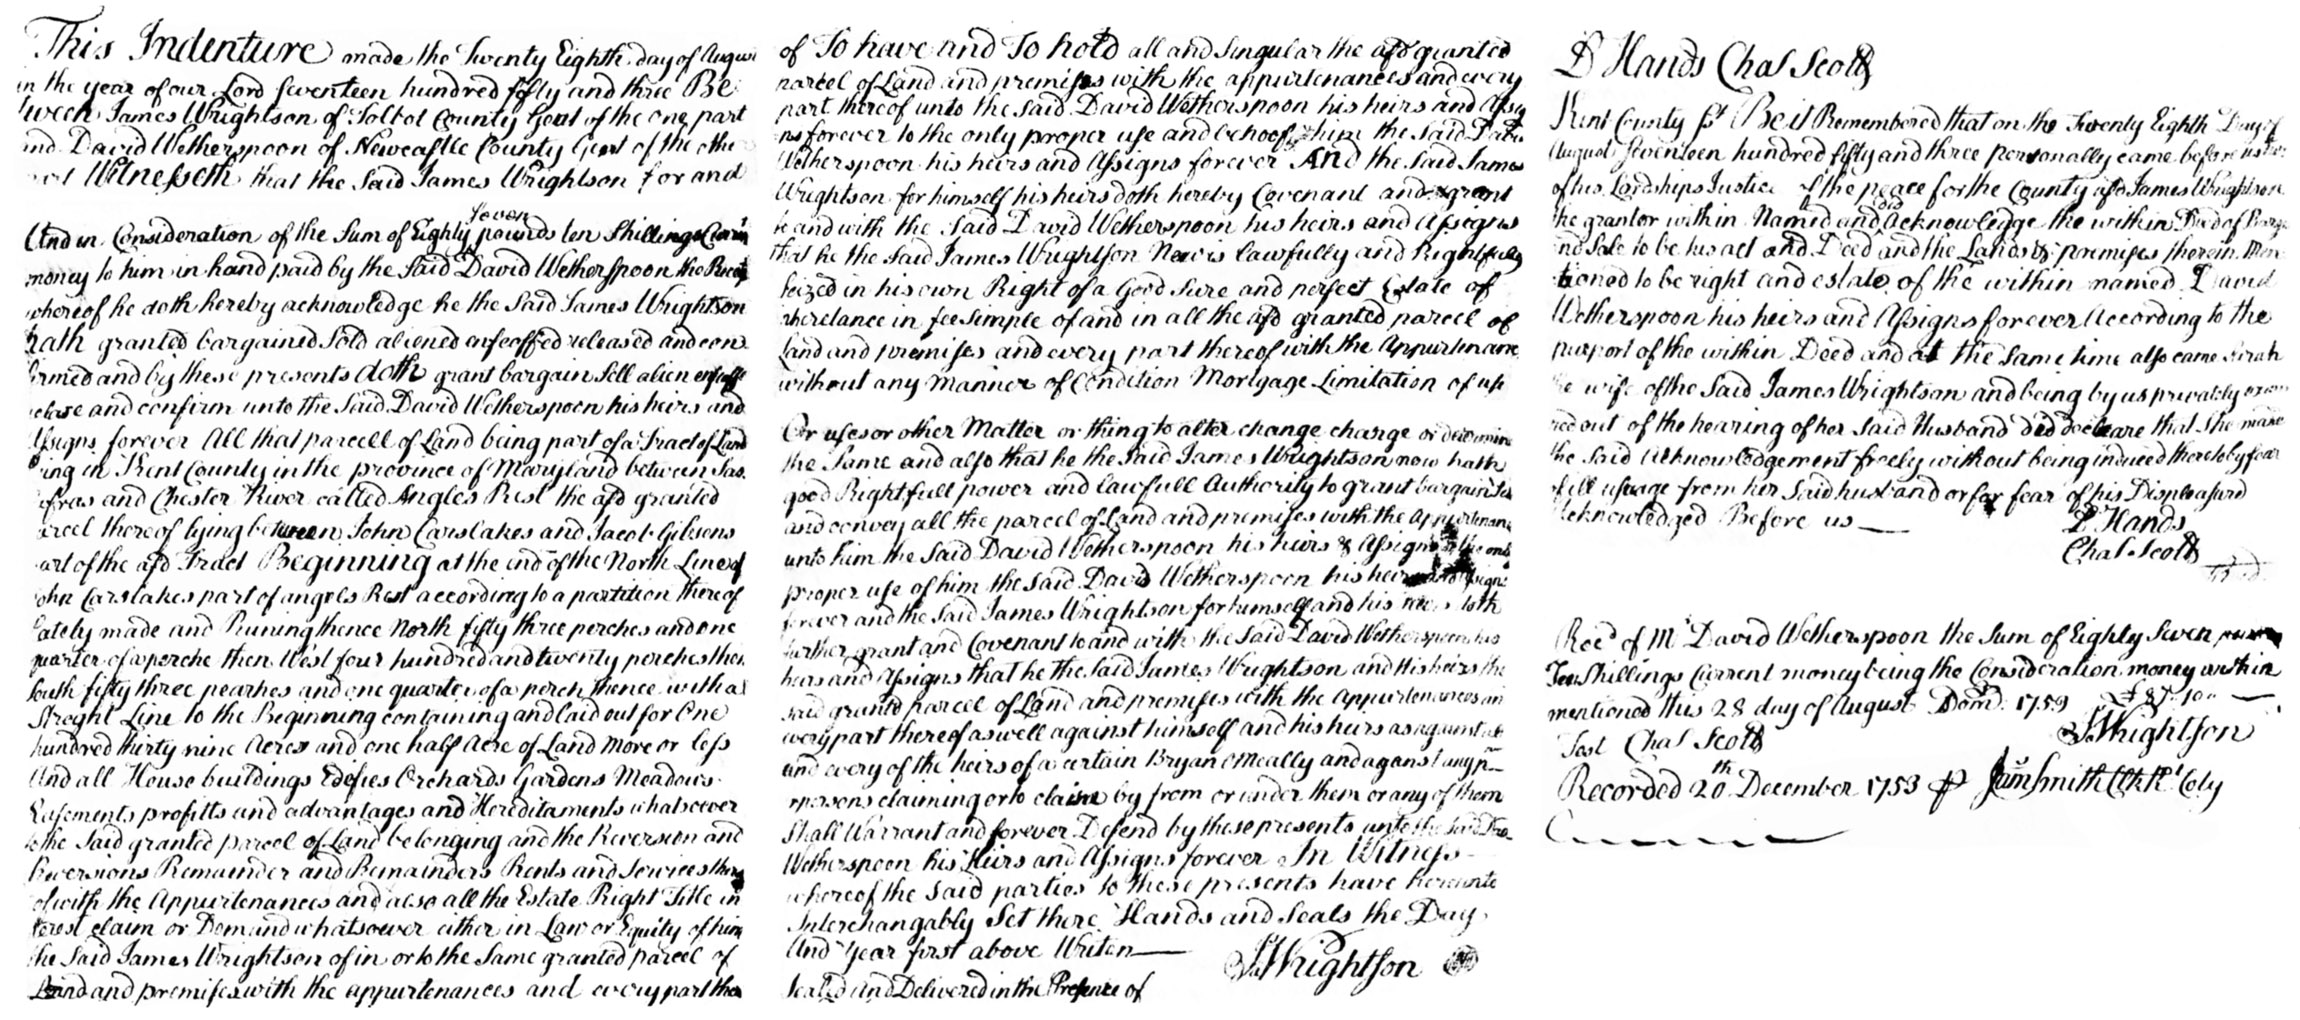 This Indenture made the Twenty Eighth day of August
in the year of our Lord Seventeen hundred fifty and three Be
tween James Wrightson of Talbot County Gent of the one part
and David Wetherspoon of Newcastle County Gent of the othe
part Witnesseth that the Said James Wrightson for and
And in Consideration of the Sum of Eighty Seven pounds ten Shillings Curren
money to him in hand paid by the Said David Wetherspoon the Receipt
whereof he doth hereby acknowledge he the Said James Wrightson
hath granted bargained Sold aliened enfeoffed released and con
firmed and by these presents doth grant bargain Sell alien enfeoff
release and confirm unto the Said David Wetherspoon his heirs and
Assigns forever All that parcell of Land being part of a Tract of Land
lying in Kent County in the province of Maryland between Sas
afras and Chester River called Angles Rest the afd granted
parcel thereof lying between John Carslakes and Jacob Gibsons
part of the afd Tract Beginning at the end of the North Line of
John Carslakes part of angels Rest according to a partition thereof
lately made and Runing thence North fifty three perches and one
quarter of a perche then West four hundred and twenty perches then
South fifty three pearhes and one quarter of a perch thence with a
Streght Line to the Beginning containing and laid out for One
hundred thirty nine Acres and one half Acre of Land more or less
And all House buildings Edefies Orchards Gardens Meadows
Easements profitts and advantages and Hereditaments whatsoever
to the Said granted parcel of Land belonging and the Reversion and
Reversions Remainder and Remainders Rents and Services there
of with the Appurtenances and also all the Estate Right Title in
terest claim or Demand whatsoever either in Law or Equity of him
the Said James Wrightson of in or to the Same granted parcel of
Land and premises with the appurtenances and every part there
of To have and To hold all and Singular the afd granted
parcel of Land and premises with the appurtenances and every
part thereof unto the Said David Wetherspoon his heirs and Assig
ns forever to the only proper use and behoof of him the Said Davi
Wetherspoon his heirs and Assigns forever And the Said James
Wrightson for himself his heirs doth hereby Covenant and grant
to and with the Said David Wetherspoon his heirs and Assigns
that he the Said James Wrightson Now is lawfully and Rightfully
Seized in his own Right of a Good Sure and perfect Estate of
inheretance in fee Simple of and in all the afd granted parcel of
Land and premises and every part thereof with the Appurtenan
without any manner of Condition Mortgage Limitation of use
Or uses or other Matter or thing to alter change charge or determine
the Same and also that he the Said James Wrightson now hath
good Rightfull power and lawfull Authority to grant bargain Sel
and convey all the parcel of Land and premises with the Appurtenan
unto him the Said David Wetherspoon his heirs & Assigns to the only
proper use of him the Said David Wetherspoon his heirs and Assigns
forever and the Said James Wrightson for himself and his heirs doth
further grant and Covenant to and with the Said David Wetherspoon his
heirs and Assigns that he the Said James Wrightson and His heirs the
said grantd parcel of Land and premises with the Appurtenances an
every part thereof as well against himself and his heirs as against all
and every of the heirs of a certain Bryan OMeally and against any p
rpersons claiming or to claim by from or under them or any of them
Shall Warrant and forever Defend by these presents unto the Said Dav
Wetherspoon his Heirs and Assigns forever In Witness
whereof the Said parties to these presents have hereunto
Interchangably Set there Hands and Seals the Day
And Year first above Writen
JWrightson
Sealed and Delivered in the Presence of
B Hands Chas Scott
Kent County Sst Be it Remembered that on the Twenty Eighth Day of
August Seventeen hundred fifty and three personally came before us two
of his Lordships Justice of the peace for the County afd James Wrightson
the grantor within Named and did Acknowledge the within Deed of Barga
nd Sale to be his act and Deed and the Lands & premises therein Men
tioned to be right and estate of the within named David
Wetherspoon his heirs and Assigns forever According to the
purport of the within Deed and at the Same time also came Sarah
the wife of the Said James Wrightson and being by us privately exam
ned out of the hearing of her Said Husband did declare that She made
the Said Acknowledgement freely without being induced thereto by fear
of ill useage from her Said husband or for fear of his Displeasure
Acknowledged Before us
B Hands
Chas Scott
Recd of Mr David Wetherspoon the Sum of Eighty Seven pounds
Ten Shillings Current money being the Consideration money within
mentioned this 28 day of August Dom 1753 £87.10
JWrightson
Test Chas Scott
Recorded 20th December 1753 Jam Smith Clk Kt Coty